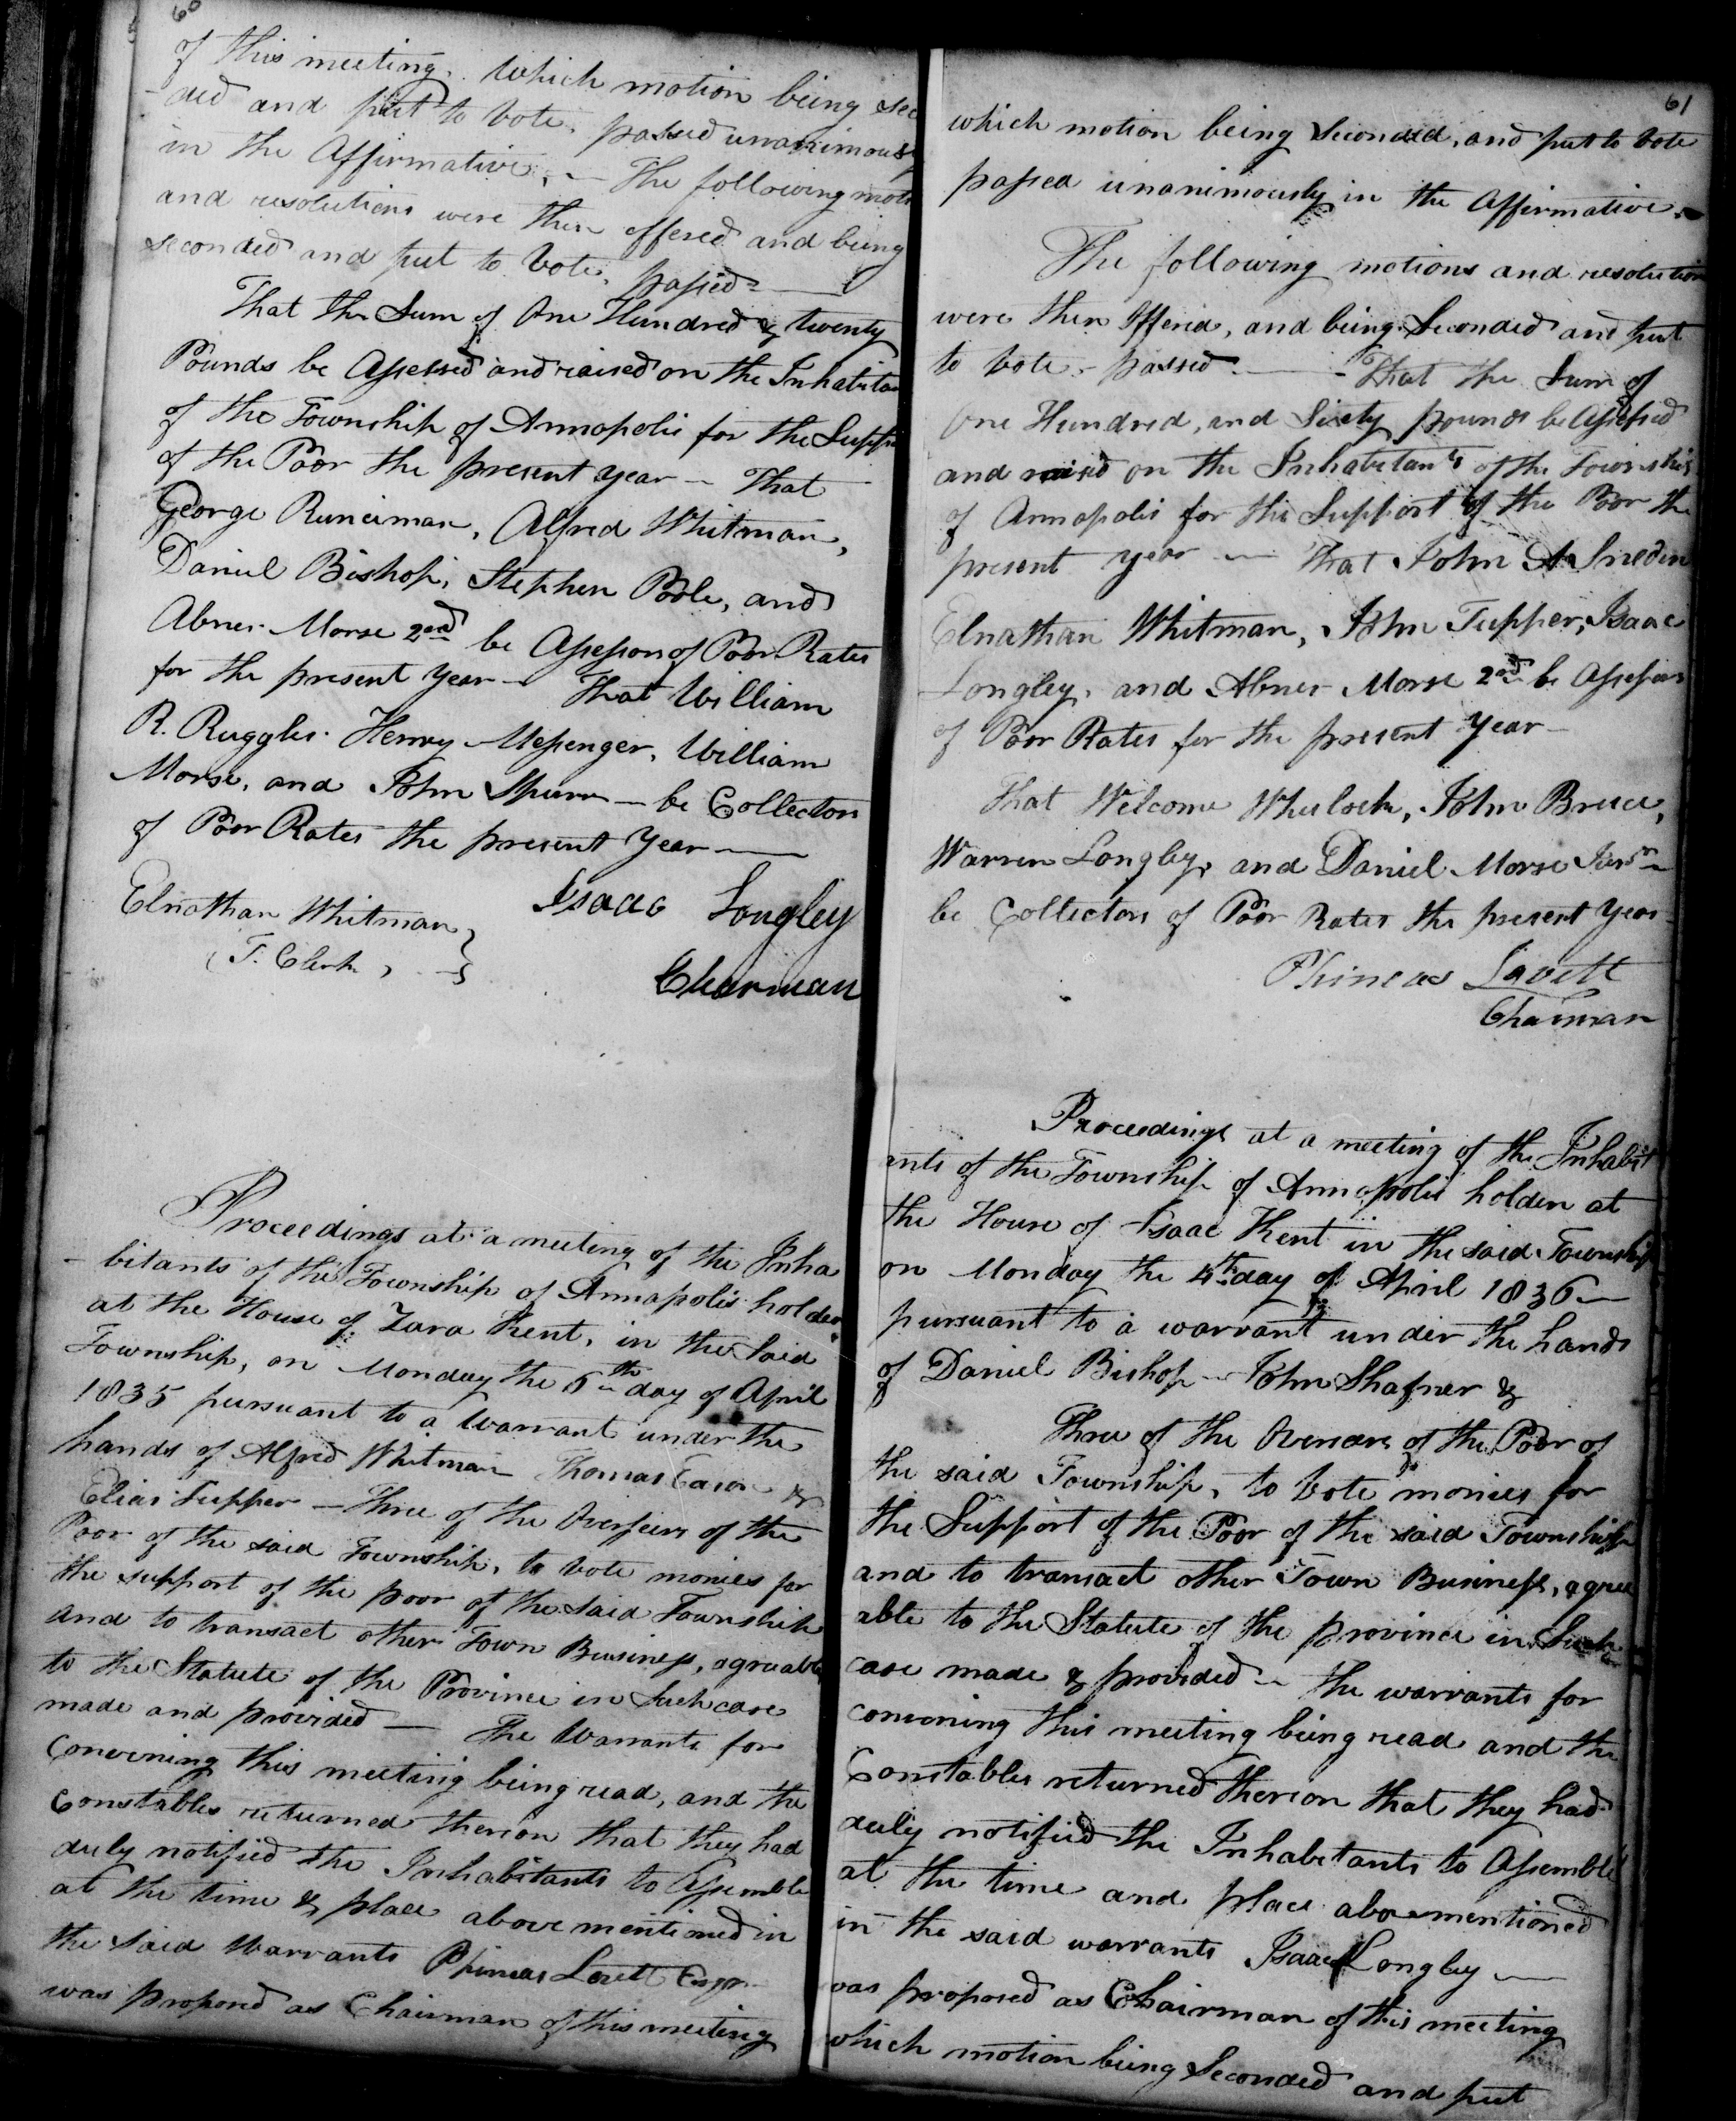 60
of this meeting. Which motion being sec
-ded and put to Vote, passed unanimous
in the Affirmative, — The following moti
and resolutions were then offered and being
seconded and put to Vote, passed —
That the Sum of One Hundred & twenty
Pounds be Assessed and raised on the Inhabitan
of the Township of Annapolis for the Suppo
of the Poor the present year — That
George Runciman, Alfred Whitman,
Daniel Bishop, Stephen Poole, and
Abner Morse 2nd be Assessors of Poor Rates
for the present year — That William
R. Ruggles. Henry Messenger, William
Morse, and John Spurr — be Collectors
of Poor Rates the present Year —
Elnathan Whitman
(T. Clerk)
Isaac Longley
Chairman
Proceedings at a meeting of the Inha
- bitants of the Township of Annapolis holden
at the House of Zara Kent, in the Said
Township, on Monday the 6th day of April
1835 pursuant to a Warrant under the
hands of Alfred Whitman Thomas Eason &
Elias Tupper — Three of the Overseers of the
Poor of the said Township, to vote monies for
the support of the poor of the said Township
and to transact other Town Business, agreable
to the Statute of the Province in Such case
made and provided — The Warrants for
Convening this meeting being read, and the
Constables returned thereon that they had
duly notified the Inhabitants to Assemble
at the time & place above mentioned in
the said Warrants Phineas Lovett Esqr
was proposed as Chairman of this meeting
61
which motion being Seconded, and put to Vote
passed unanimously in the Affirmative.
The following motions and resolution
were then Offered, and being Seconded and put
to Vote - passed. — That the Sum of
One Hundred, and Sixty pounds be Assessed
and raised on the Inhabitants of the Township
of Annapolis for the Support of the Poor the
present year — That John A Sneden
Elnathan Whitman, John Tupper, Isaac
Longley, and Abner Morse 2nd be Assessors
of Poor Rates for the present Year —
That Welcome Wheelock, John Bruce,
Warren Longley, and Daniel Morse Junr
be Collectors of Poor Rates the present Year —
Phineas Lovett
Chairman
Proceedings at a meeting of the Inhabit
ants of the Township of Annapolis holden at
the House of Isaac Kent in the said Township
on Monday the 4th day of April 1836 —
pursuant to a warrant under the hands
of Daniel Bishop — John Shafner &
Three of the Overseers of the Poor of
the said Township, to Vote monies for
the Support of the Poor of the said Township
and to transact other Town Business, agree
able to the Statute of the province in Such
case made & provided — the warrants for
convening this meeting being read and the
Constables returned thereon that they had
duly notified the Inhabitants to Assemble
at the time and place abovementioned
in the said warrants Isaac Longley —
was proposed as Chairman of this meeting
which motion being Seconded and put